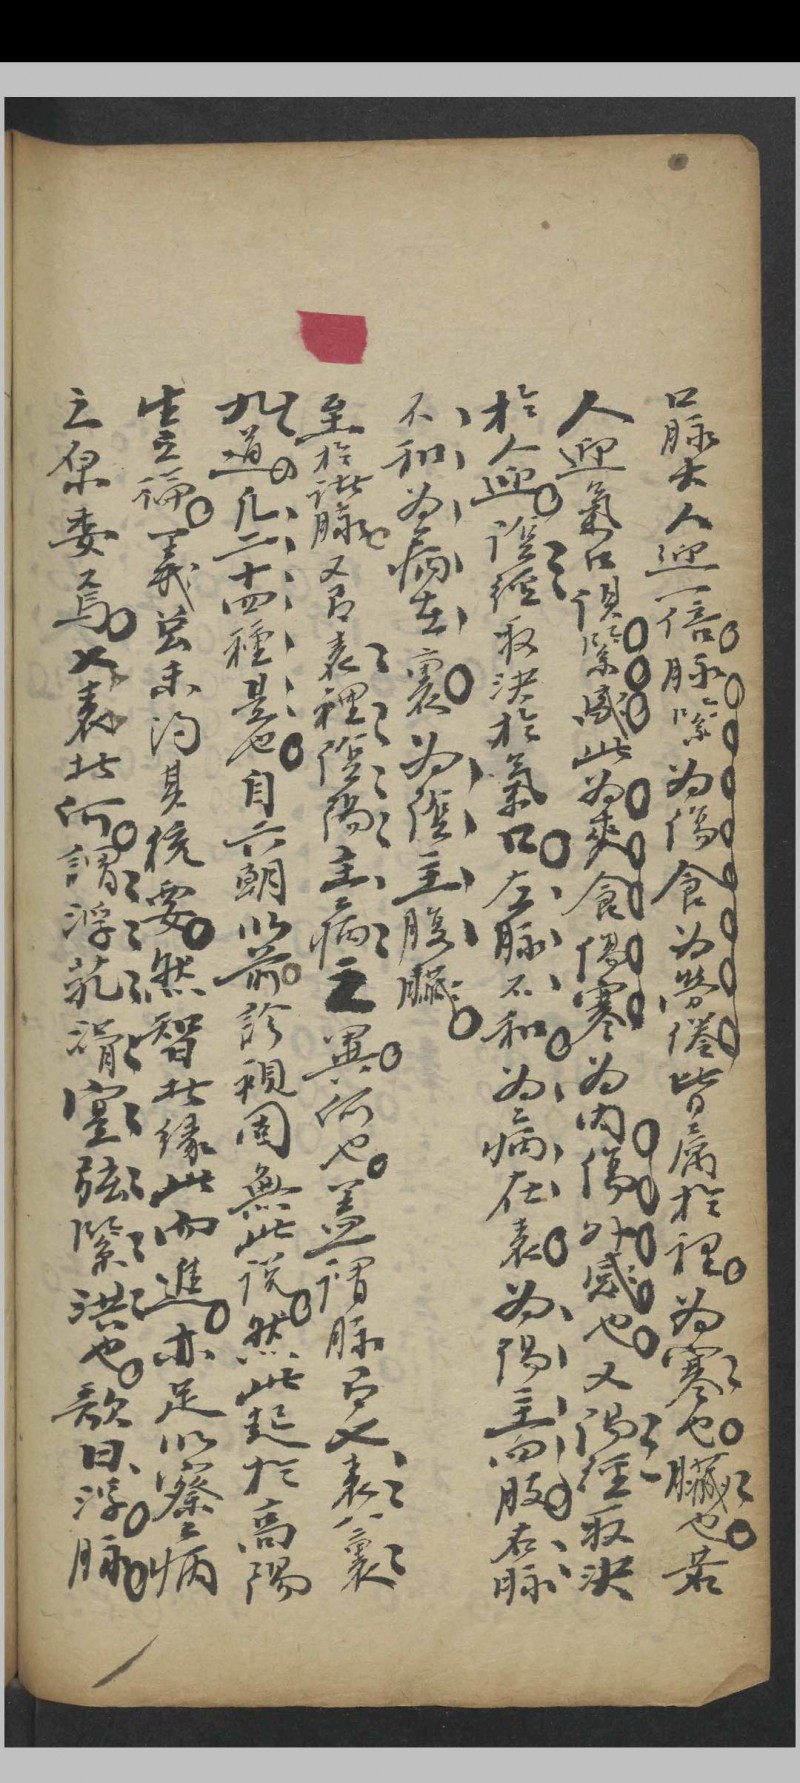 口脉大人迎一倍脉緊為傷食為勞倦皆屬於裡為寒也臟也若
人迎氣口俱緊盛此為夾食傷寒為內傷外感也又陽經取决
於人迎陰經取決於氣口左脉不和為病在表為陽主四肢右脉
不和為病在裏為陰主腹臟
至於諸脉又有表裡陰陽主病之異何也盖謂脉有七表八裏
九道凡二十四種是也自六朝以前診視固無此說然此起於高陽
生立徧義莫未得其統要然智者緣此而進亦足以察病
之原委焉七表者何謂浮芤滑寔弦緊洪也歌曰浮脉